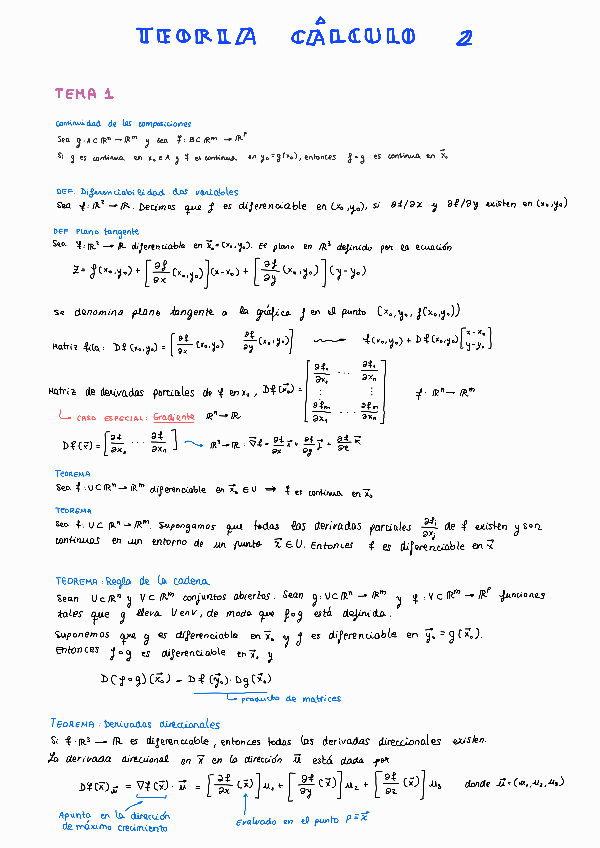 TEORIA CÁLCULO 2
TEMA 1
Continuidad de las composiciones
Sea g: A⊂ℝⁿ → ℝᵐ y sea f: B⊂ℝᵐ → ℝᵖ
Si g es continua en x₀∈A y f es continua en y₀=g(x₀), entonces f∘g es continua en x⃗₀
DEF. Diferenciabilidad: dos variables
Sea f: ℝ² → ℝ. Decimos que f es diferenciable en (x₀,y₀), si ∂f/∂x y ∂f/∂y existen en (x₀,y₀)
DEF Plano tangente
Sea f: ℝ² → ℝ diferenciable en x⃗₀=(x₀,y₀). El plano en ℝ³ definido por la ecuación
Z = f(x₀,y₀) + [∂f/∂x (x₀,y₀)](x-x₀) + [∂f/∂y (x₀,y₀)](y-y₀)
se denomina plano tangente a la gráfica f en el punto (x₀,y₀,f(x₀,y₀))
Matriz fila: Df(x₀,y₀) = [∂f/∂x (x₀,y₀) ∂f/∂y (x₀,y₀)] f(x₀,y₀) + Df(x₀,y₀)[x-x₀ y-y₀]
Matriz de derivadas parciales de f en x₀, Df(x⃗₀) = [∂f₁/∂x₁ ... ∂f₁/∂xₙ ⋮ ⋮ ∂fₘ/∂x₁ ... ∂fₘ/∂xₙ] f: ℝⁿ → ℝᵐ
CASO ESPECIAL: Gradiente ℝⁿ → ℝ
Df(x⃗) = [∂f/∂x₁ ... ∂f/∂xₙ] ℝⁿ → ℝ: ∇f = ∂f/∂x i⃗ + ∂f/∂y j⃗ + ∂f/∂z k⃗
TEOREMA
Sea f: U⊂ℝⁿ → ℝᵐ diferenciable en x⃗₀ ∈ U ⇒ f es continua en x⃗₀
TEOREMA
Sea f: U⊂ℝⁿ → ℝᵐ. Supongamos que todas las derivadas parciales ∂fᵢ/∂xⱼ de f existen y son
continuas en un entorno de un punto x⃗ ∈ U. Entonces f es diferenciable en x⃗
TEOREMA: Regla de la cadena
Sean U⊂ℝⁿ y V⊂ℝᵐ conjuntos abiertos. Sean g: U⊂ℝⁿ → ℝᵐ y f: V⊂ℝᵐ → ℝᵖ funciones
tales que g lleva U en V, de modo que f∘g está definida.
Suponemos que g es diferenciable en x⃗₀ y f es diferenciable en y⃗₀ = g(x⃗₀).
Entonces f∘g es diferenciable en x⃗₀ y
D(f∘g)(x⃗₀) = Df(y⃗₀)·Dg(x⃗₀)
producto de matrices
TEOREMA: Derivadas direccionales
Si f: ℝ³ → ℝ es diferenciable, entonces todas las derivadas direccionales existen.
La derivada direccional en x⃗ en la dirección u⃗ está dada por
Df(x⃗)u⃗ = ∇f(x⃗)·u⃗ = [∂f/∂x (x⃗)]u₁ + [∂f/∂y (x⃗)]u₂ + [∂f/∂z (x⃗)]u₃ donde u⃗=(u₁,u₂,u₃)
Apunta en la dirección
de máximo crecimiento
Evaluado en el punto P≡x⃗